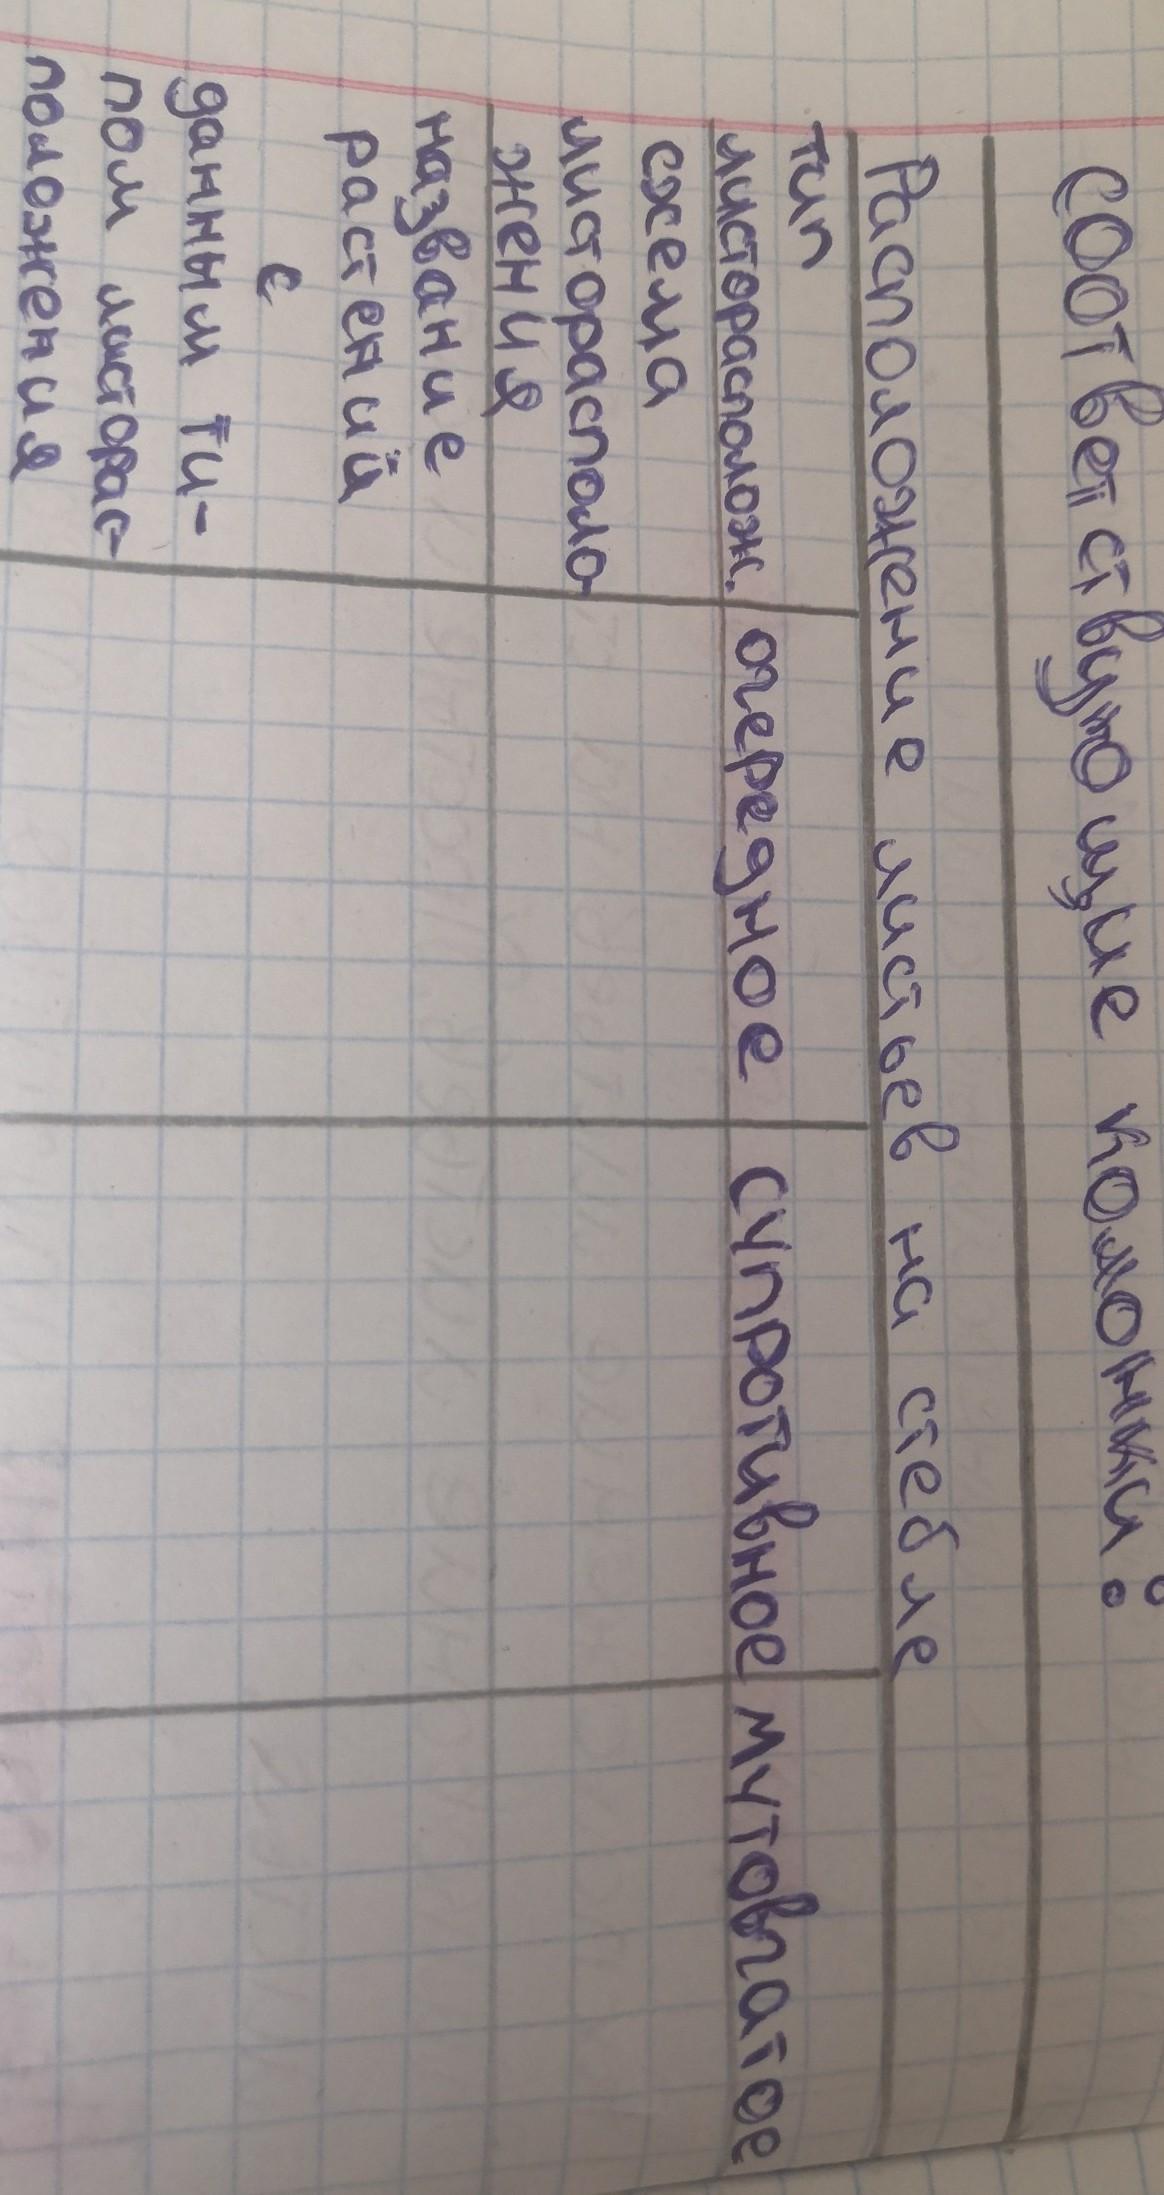 соответствующие колонки:
Расположение листьев на стебле
тип
листорасполож.
очередное
супротивное
мутовчатое
схема
листорасполо
жения
название
растений
с
данным ти-
пом листорас-
положения